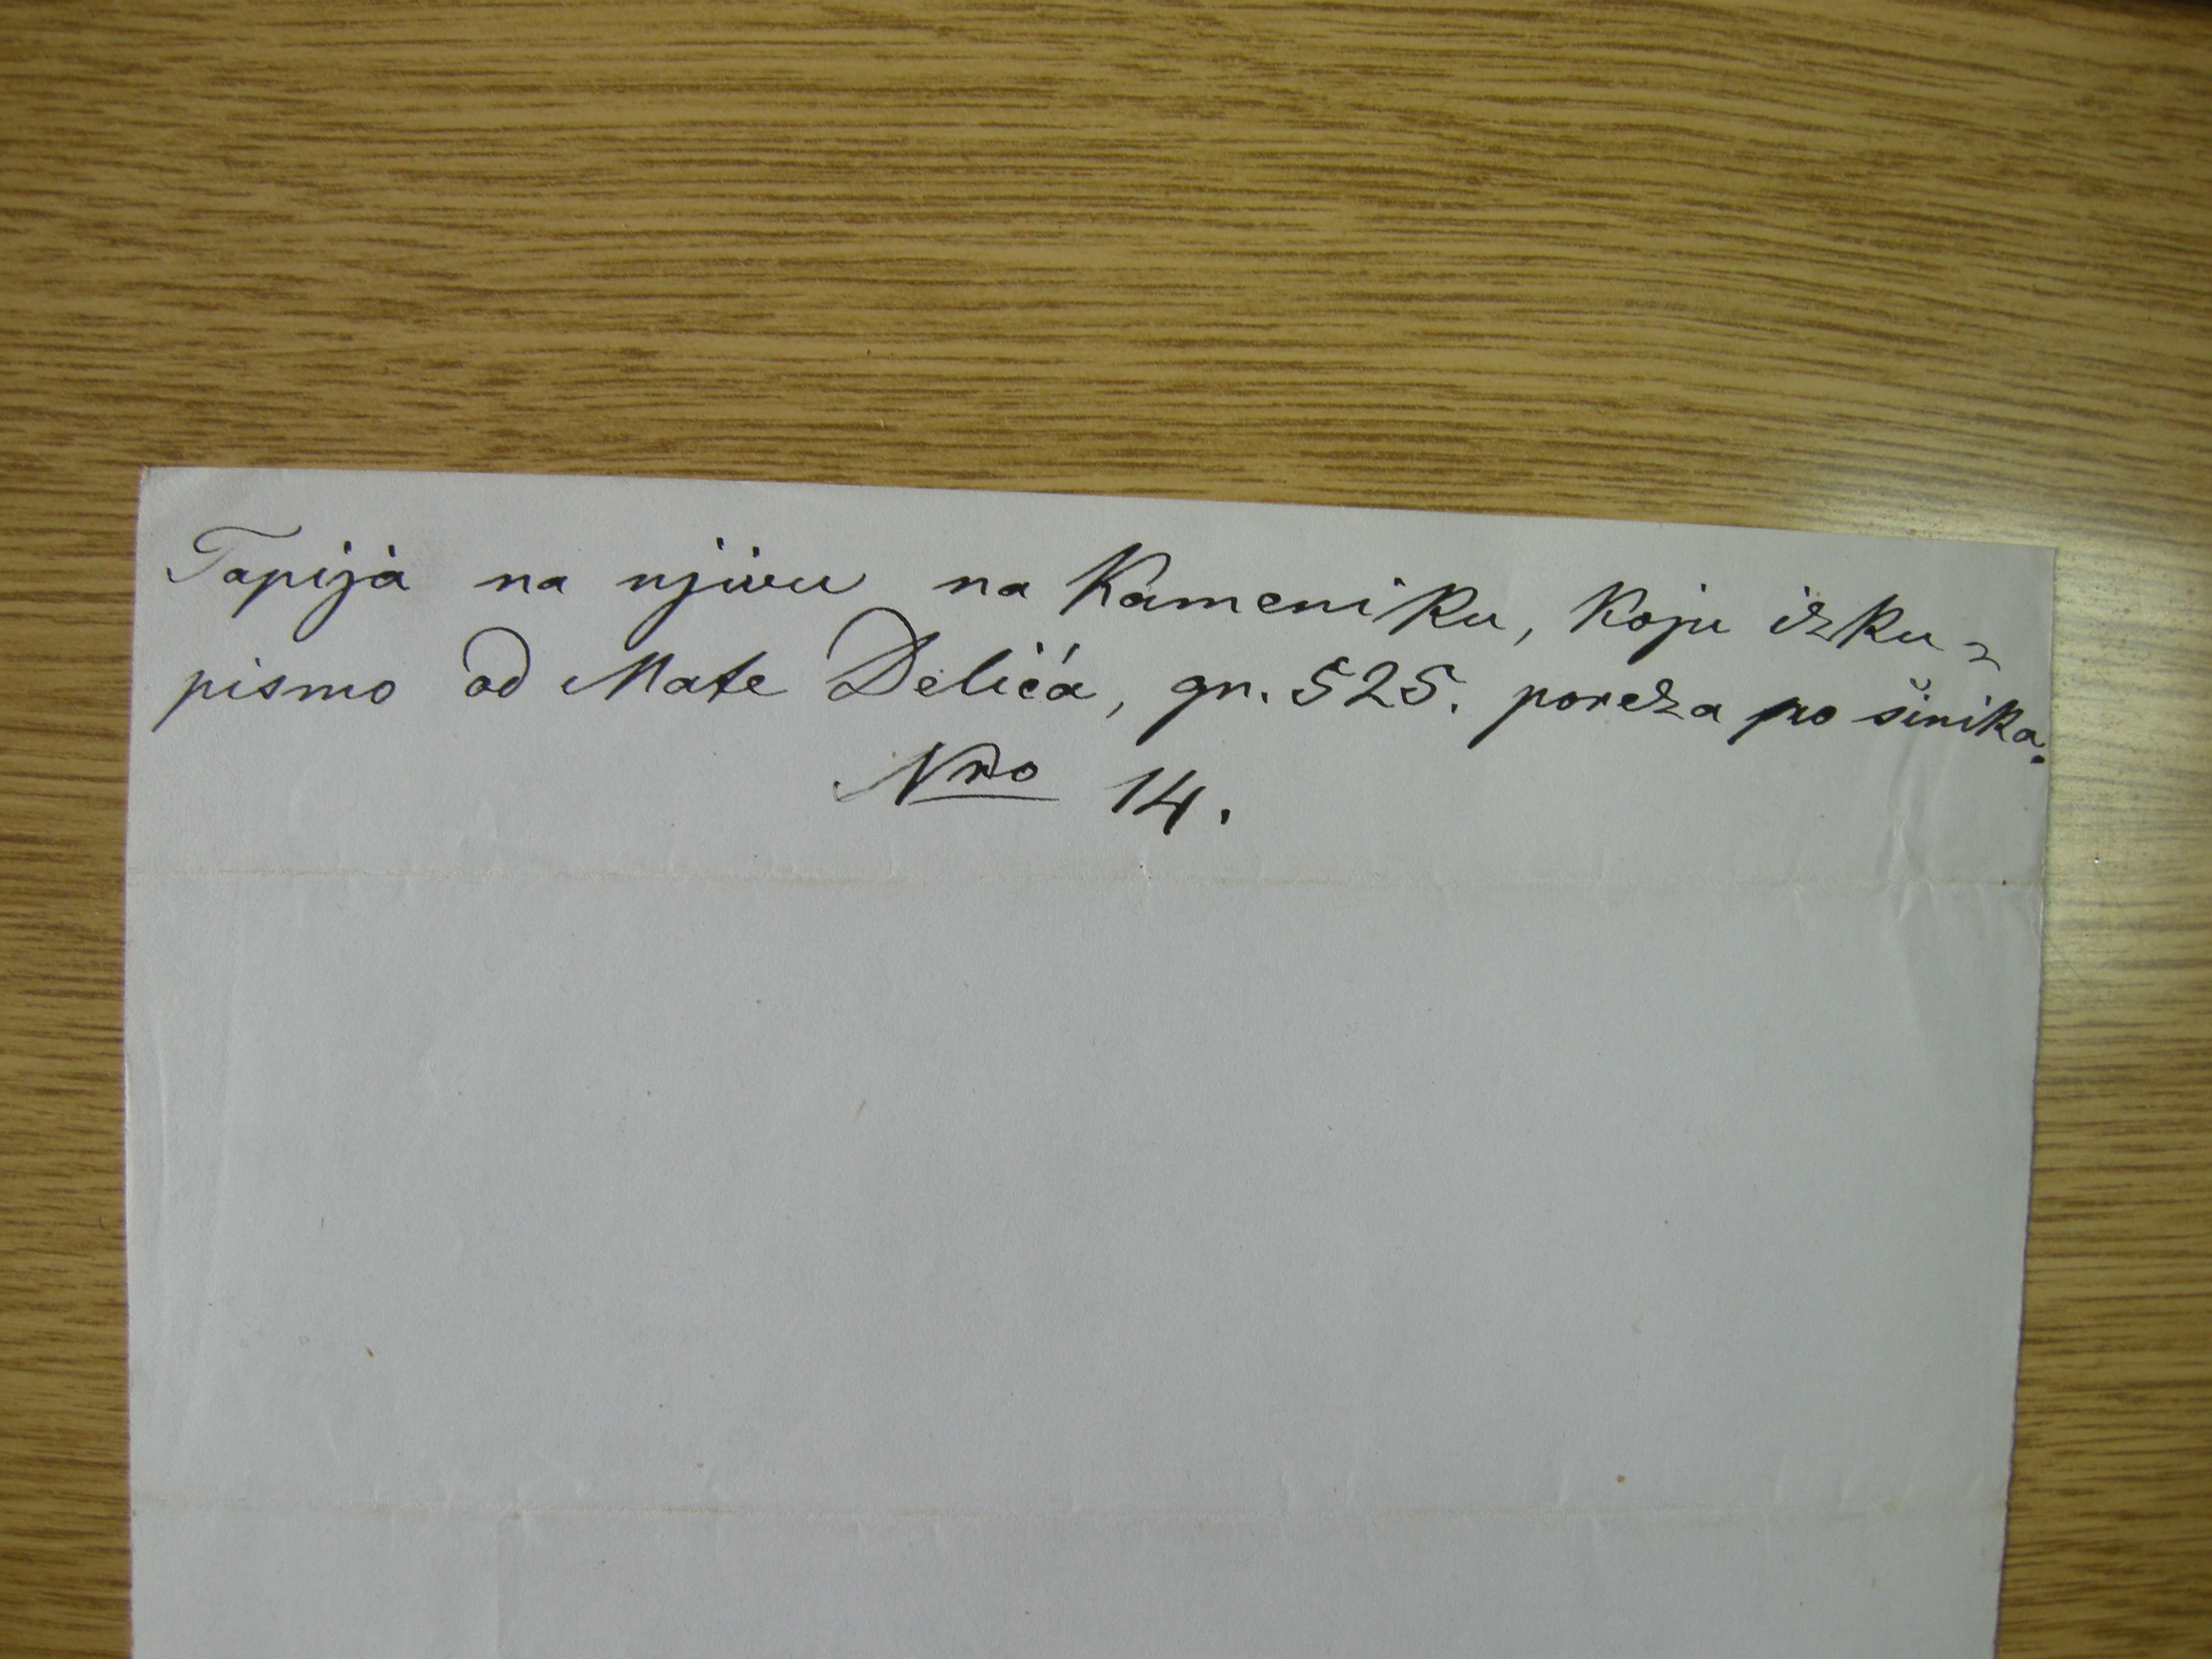 Tapija na njivu na Kameniku, koju izku=
pismo od Mate Delića, gr. 525. poreza po šinika.
Nro 14.